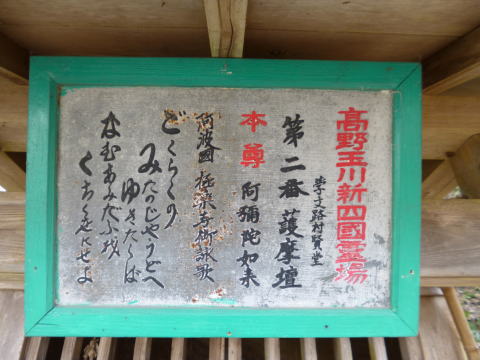 高野玉川新四國霊場
学文路村賢堂
第二番護摩壇
本尊 阿彌陀如来
阿波國極樂寺御詠歌
ごくらくの
みだのじやうどへ
ゆきたくば
なむあみだぶつ
くちくせにせよ